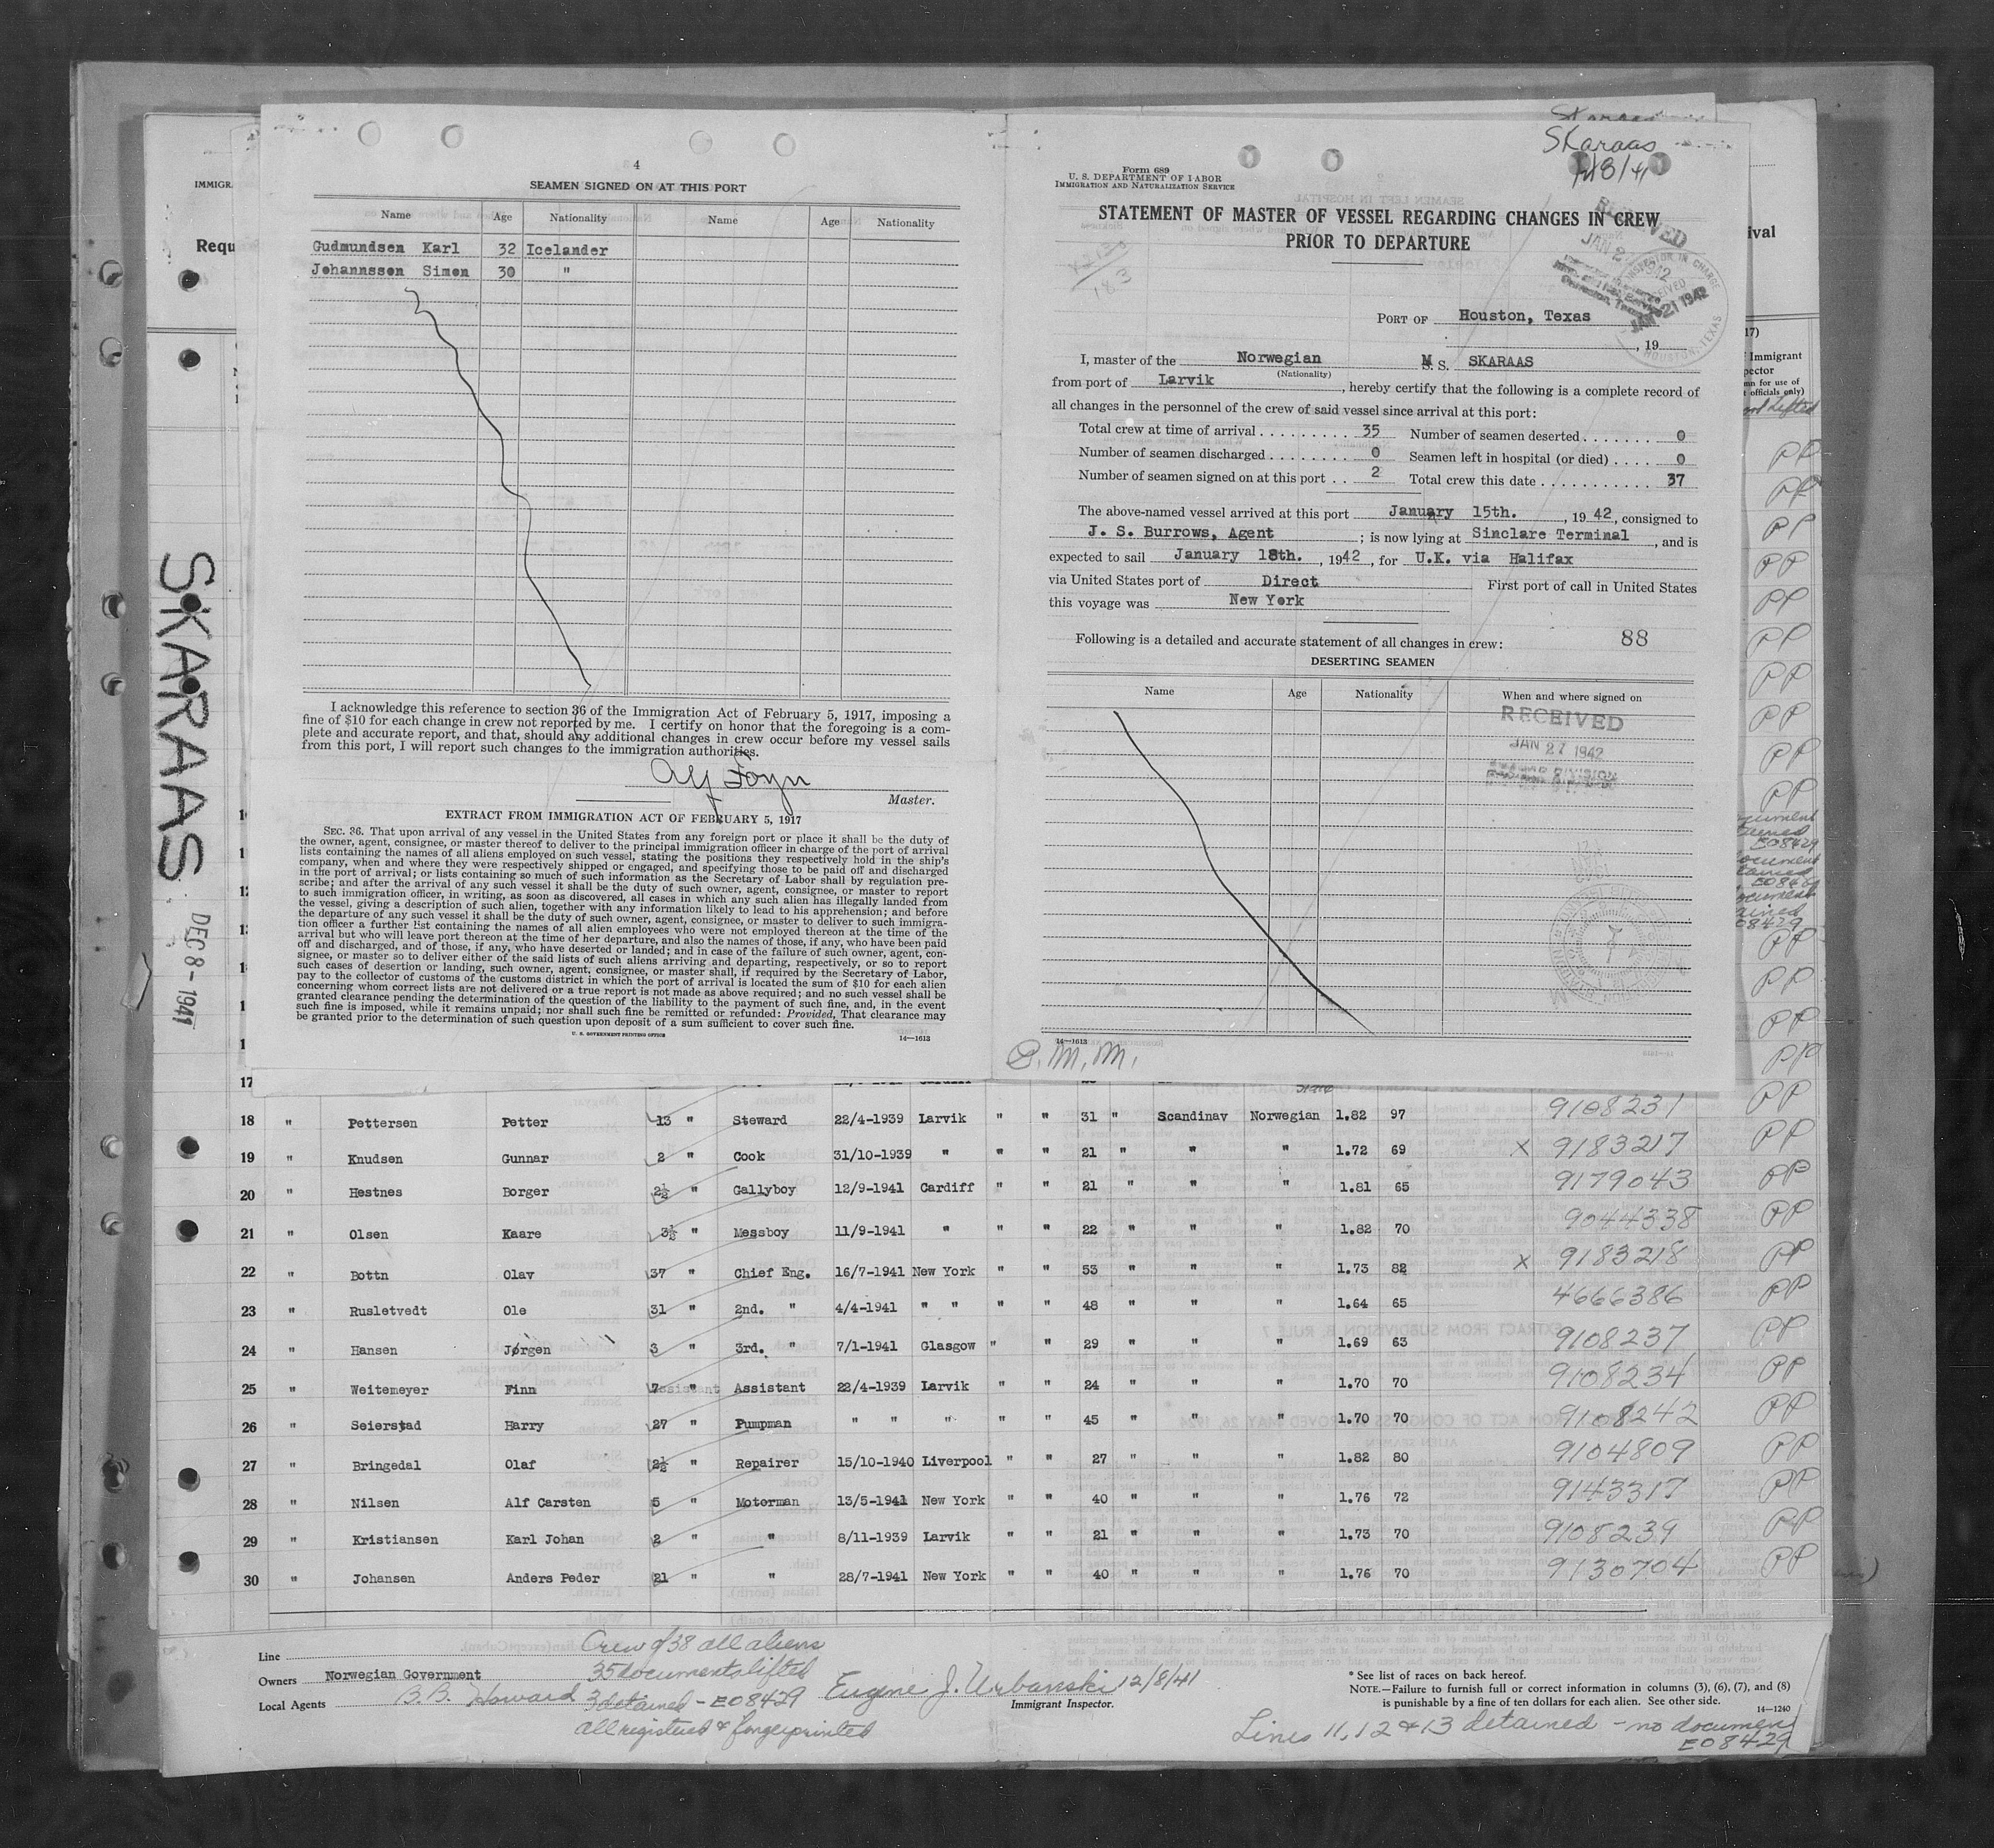 4
SEAMEN SIGNED ON AT THIS PORT
Name Age Nationality Name Age Nationality
Gudmundsen Karl 32 Icelander
Johannsson Simon 30 "
I acknowledge this reference to section 36 of the Immigration Act of February 5, 1917, imposing a
fine of $10 for each change in crew not reported by me. I certify on honor that the foregoing is a com-
plete and accurate report, and that, should any additional changes in crew occur before my vessel sails
from this port, I will report such changes to the immigration authorities.
Alf Foyn
Master.
EXTRACT FROM IMMIGRATION ACT OF FEBRUARY 5, 1917
SEC. 36. That upon arrival of any vessel in the United States from any foreign port or place it shall be the duty of
the owner, agent, consignee, or master thereof to deliver to the principal immigration officer in charge of the port of arrival
lists containing the names of all aliens employed on such vessel, stating the positions they respectively hold in the ship's
company, when and where they were respectively shipped or engaged, and specifying those to be paid off and discharged
in the port of arrival; or lists containing so much of such information as the Secretary of Labor shall by regulation pre-
scribe; and after the arrival of any such vessel it shall be the duty of such owner, agent, consignee, or master to report
to such immigration officer, in writing, as soon as discovered, all cases in which any such alien has illegally landed from
the vessel, giving a description of such alien, together with any information likely to lead to his apprehension; and before
the departure of any such vessel it shall be the duty of such owner, agent, consignee, or master to deliver to such immigra-
tion officer a further list containing the names of all alien employees who were not employed thereon at the time of the
arrival but who will leave port thereon at the time of her departure, and also the names of those, if any, who have been paid
off and discharged, and of those, if any, who have deserted or landed; and in case of the failure of such owner, agent, con-
signee, or master so to deliver either of the said lists of such aliens arriving and departing, respectively, or so to report
such cases of desertion or landing, such owner, agent, consignee, or master shall, if required by the Secretary of Labor,
pay to the collector of customs of the customs district in which the port of arrival is located the sum of $10 for each alien
concerning whom correct lists are not delivered or a true report is not made as above required; and no such vessel shall be
granted clearance pending the determination of the question of the liability to the payment of such fine, and, in the event
such fine is imposed, while it remains unpaid; nor shall such fine be remitted or refunded: Provided, That clearance may
be granted prior to the determination of such question upon deposit of a sum sufficient to cover such fine.
U. S. GOVERNMENT PRINTING OFFICE 14—1613
Skaraas
Form 689
U. S. DEPARTMENT OF LABOR
IMMIGRATION AND NATURALIZATION SERVICE
STATEMENT OF MASTER OF VESSEL REGARDING CHANGES IN CREW
PRIOR TO DEPARTURE
RECEIVED
INSPECTOR IN CHARGE
RECEIVED
JAN 21 1942
HOUSTON, TEXAS
PORT OF Houston, Texas
, 19
I, master of the Norwegian M. S. SKARAAS
(Nationality)
from port of Larvik, hereby certify that the following is a complete record of
all changes in the personnel of the crew of said vessel since arrival at this port:
Total crew at time of arrival 35 Number of seamen deserted 0
Number of seamen discharged 0 Seamen left in hospital (or died) 0
Number of seamen signed on at this port 2 Total crew this date 37
The above-named vessel arrived at this port January 15th., 1942, consigned to
J. S. Burrows, Agent; is now lying at Sinclare Terminal, and is
expected to sail January 18th., 1942, for U.K. via Halifax
via United States port of Direct First port of call in United States
this voyage was New York
Following is a detailed and accurate statement of all changes in crew: 88
DESERTING SEAMEN
Name Age Nationality When and where signed on
RECEIVED
JAN 27 1942
14—1613
P. M. M.
SKARAAS
DEC 8 - 1941
IMMIGR
Requ
ival
17)
Immigrant
pector
mn for use of
t officials only)
17
18 " Pettersen Petter 13 " Steward 22/4-1939 Larvik " " 31 " Scandinav Norwegian 1.82 97 9108231 PP
19 " Knudsen Gunnar 2 " Cook 31/10-1939 " " " 21 " " " 1.72 69 x 9183217 PP
20 " Hestnes Borger 2½ " Gallyboy 12/9-1941 Cardiff " " 21 " " " 1.81 65 9179043 PP
21 " Olsen Kaare 3½ " Messboy 11/9-1941 " " " 22 " " " 1.82 70 9044338 PP
22 " Bottn Olav 37 " Chief Eng. 16/7-1941 New York " " 53 " " " 1.73 82 x 9183218 PP
23 " Rusletvedt Ole 31 " 2nd. " 4/4-1941 " " " " 48 " " " 1.64 65 4666386 PP
24 " Hansen Jørgen 3 " 3rd. " 7/1-1941 Glasgow " " 29 " " " 1.69 63 9108237 PP
25 " Weitemeyer Finn 7 " Assistant 22/4-1939 Larvik " " 24 " " " 1.70 70 9108234 PP
26 " Seierstad Harry 27 " Pumpman " " " " " 45 " " " 1.70 70 9108242 PP
27 " Bringedal Olaf 2½ " Repairer 15/10-1940 Liverpool " " 27 " " " 1.82 80 9104809 PP
28 " Nilsen Alf Carsten 5 " Motorman 13/5-1941 New York " " 40 " " " 1.76 72 9143317 PP
29 " Kristiansen Karl Johan 2 " " 8/11-1939 Larvik " " 21 " " " 1.73 70 9108239 PP
30 " Johansen Anders Peder 21 " " 28/7-1941 New York " " 40 " " " 1.76 70 9130704 PP
Line
Crew of 38 all aliens
Owners Norwegian Government 35 documents lifted
Local Agents B.B. Howard 3 detained - E08429
all registered & fingerprinted
Eugene J. Urbanski 12/8/41
Immigrant Inspector.
* See list of races on back hereof.
NOTE.—Failure to furnish full or correct information in columns (3), (6), (7), and (8)
is punishable by a fine of ten dollars for each alien. See other side.
14—1240
Lines 11, 12 & 13 detained - no documen
E08429